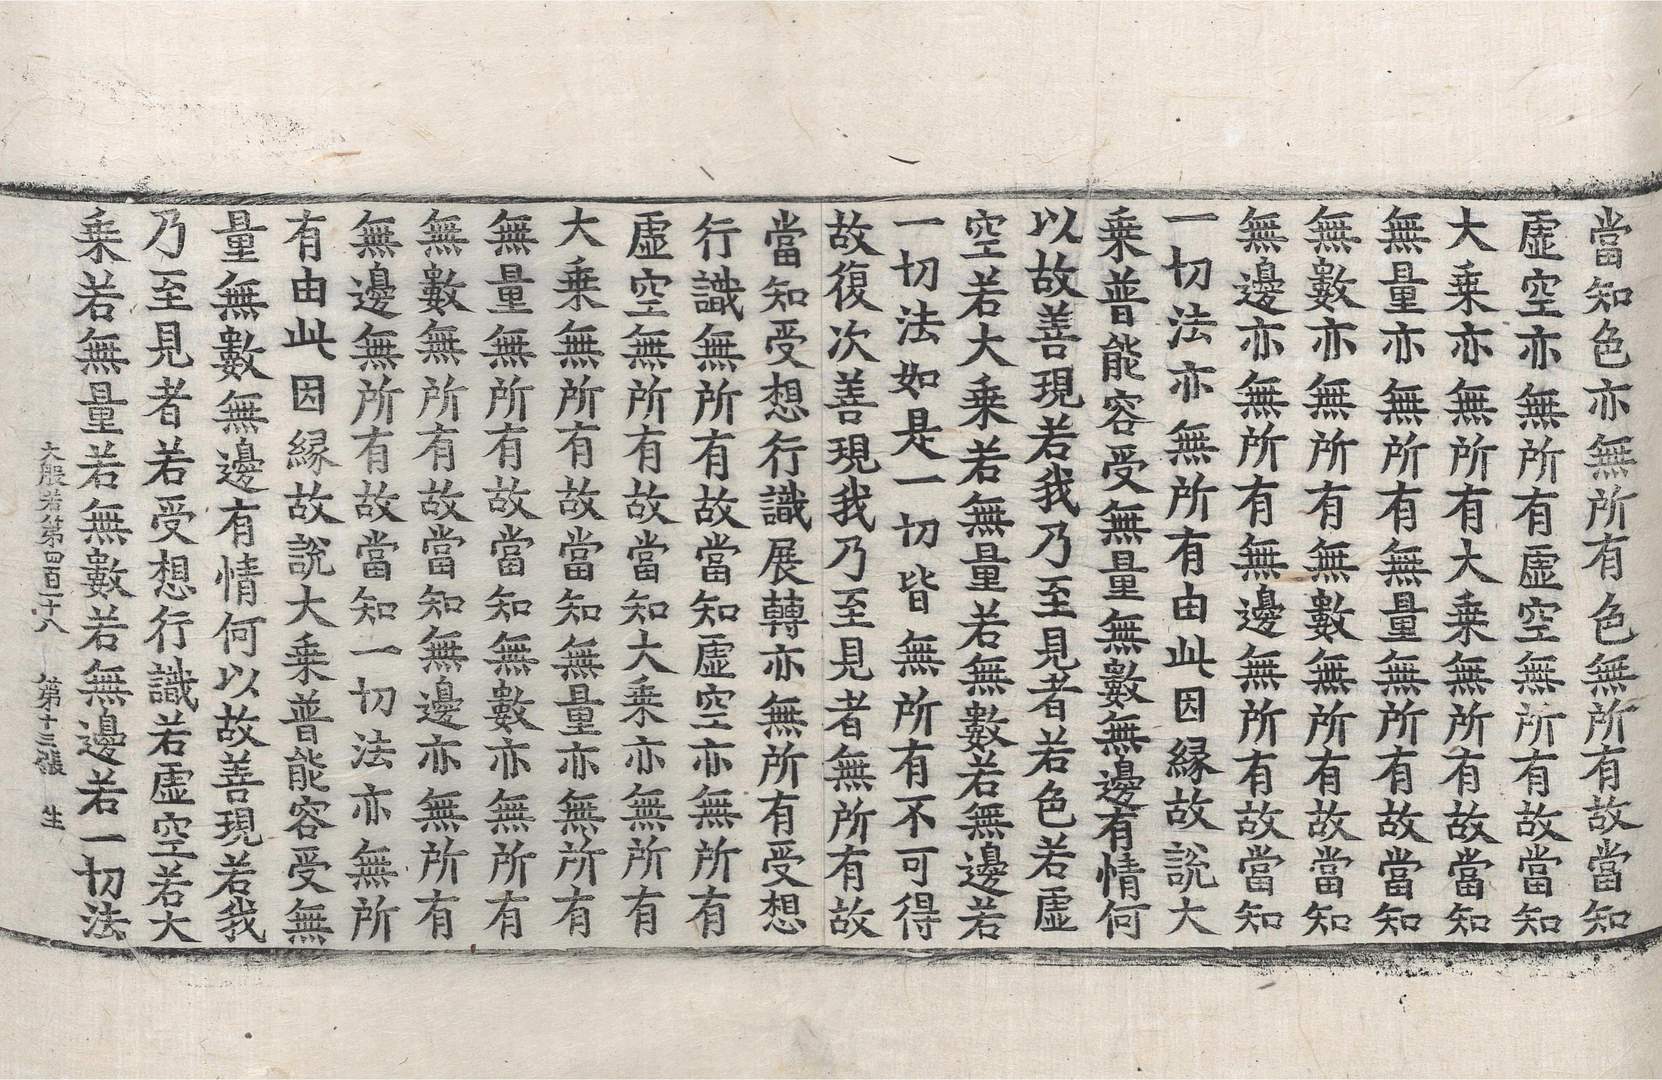 當知色亦無所有色無所有故當知
虚空亦無所有虚空無所有故當知
大乗亦無所有大乗無所有故當知
無量亦無所有無量無所有故當知
無數亦無所有無數無所有故當知
無邊亦無所有無邊無所有故當知
一切法亦無所有由此因縁故說大
乗普能容受無量無數無邊有情何
以故善現若我乃至見者若色若虚
空若大乗若無量若無數若無邊若
一切法如是一切皆無所有不可得
故復次善現我乃至見者無所有故
當知受想行識展轉亦無所有受想
行識無所有故當知虚空亦無所有
虚空無所有故當知大乗亦無所有
大乗無所有故當知無量亦無所有
無量無所有故當知無數亦無所有
無數無所有故當知無邊亦無所有
無邊無所有故當知一切法亦無所
有由此因縁故說大乗普能容受無
量無數無邊有情何以故善現若我
乃至見者若受想行識若虚空若大
乗若無量若無數若無邊若一切法
大般若第四百十八 第十三張 生